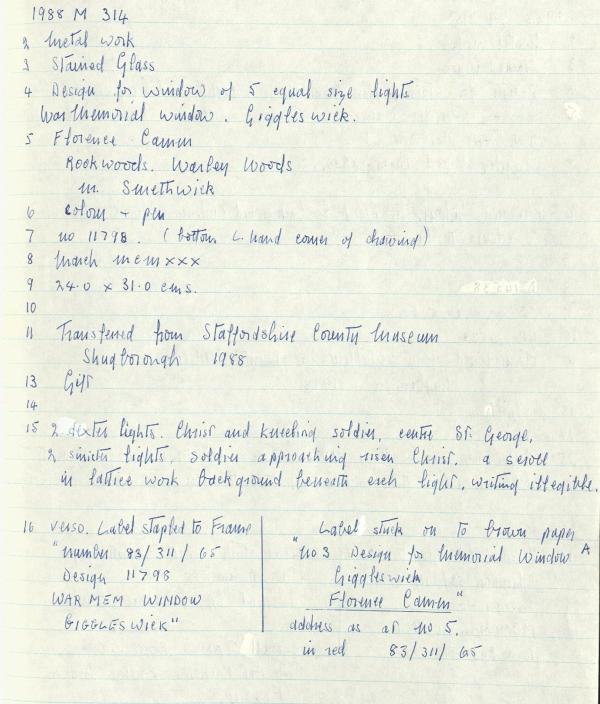 1988 M 314
2 Metal work
3 Stained Glass
4 Design for window of 5 equal size lights
War Memorial window. Giggleswick.
5 Florence Camm
Rookwoods. Warley Woods
nr. Smethwick
6 colour + pen
7 no 11798. (bottom L. hand corner of drawing)
8 March mcmxxx
9 24.0 x 31.0 cms.
10
11 Transferred from Staffordshire County Museum
Shugborough 1988
13 Gift
14
15 2 dexter lights. Christ and kneeling soldier, centre St. George,
2 sinister lights, soldier approaching risen Christ. a scroll
in lattice work background beneath each light, writing illegible.
16 verso. Label stapled to Frame
"number 83/311/65
Design 11798
WAR MEM WINDOW
GIGGLESWICK"
Label stuck on to brown paper
"no 3 Design for Memorial Window A
Giggleswick
Florence Camm"
address as at no 5.
in red 83/311/65